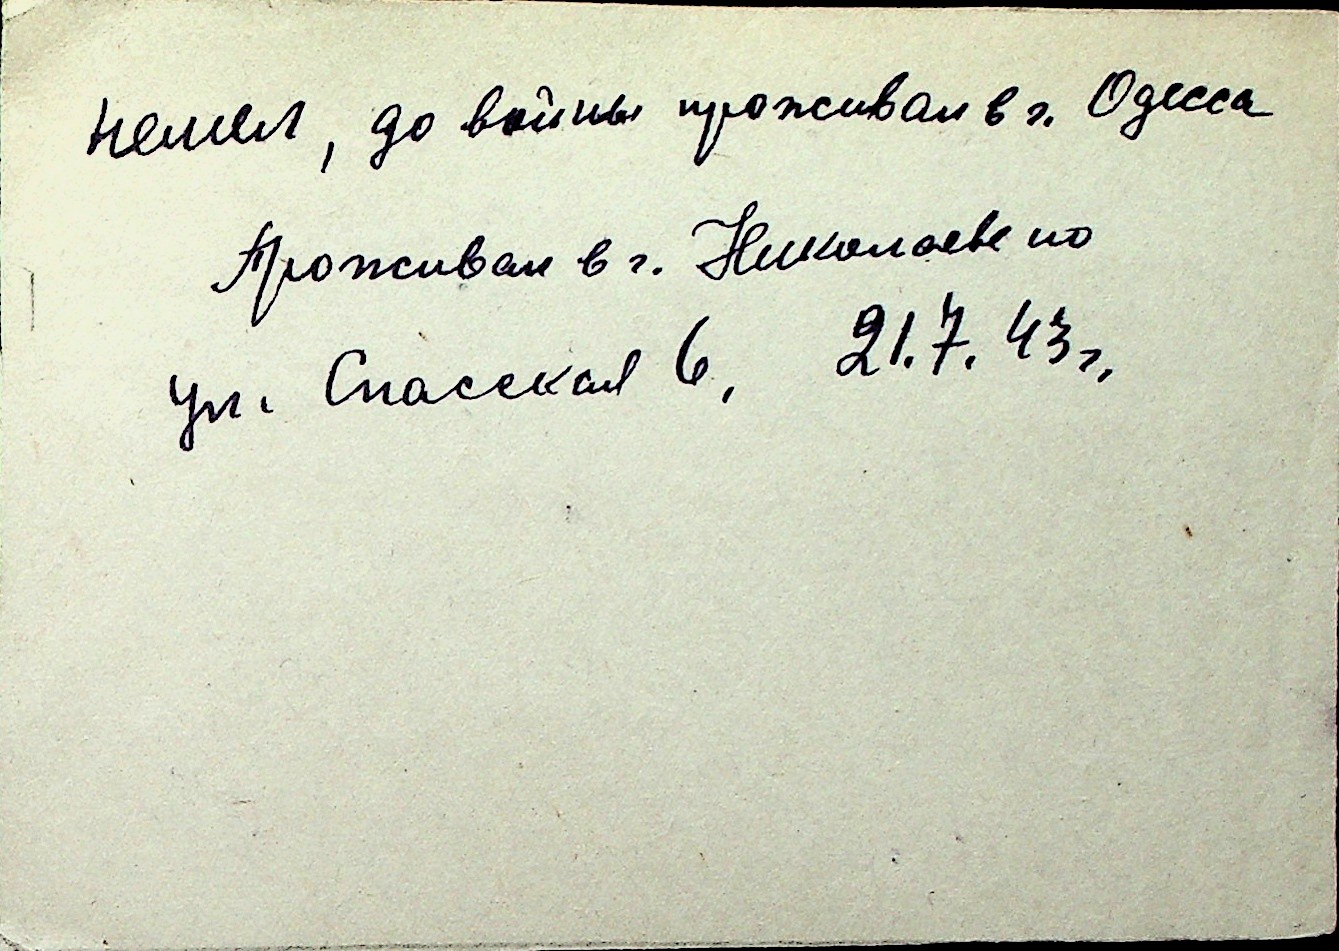 немец, до войны проживал в г. Одесса
Проживал в г. Николаеве по
ул. Спасская 6, 21.7.43г.